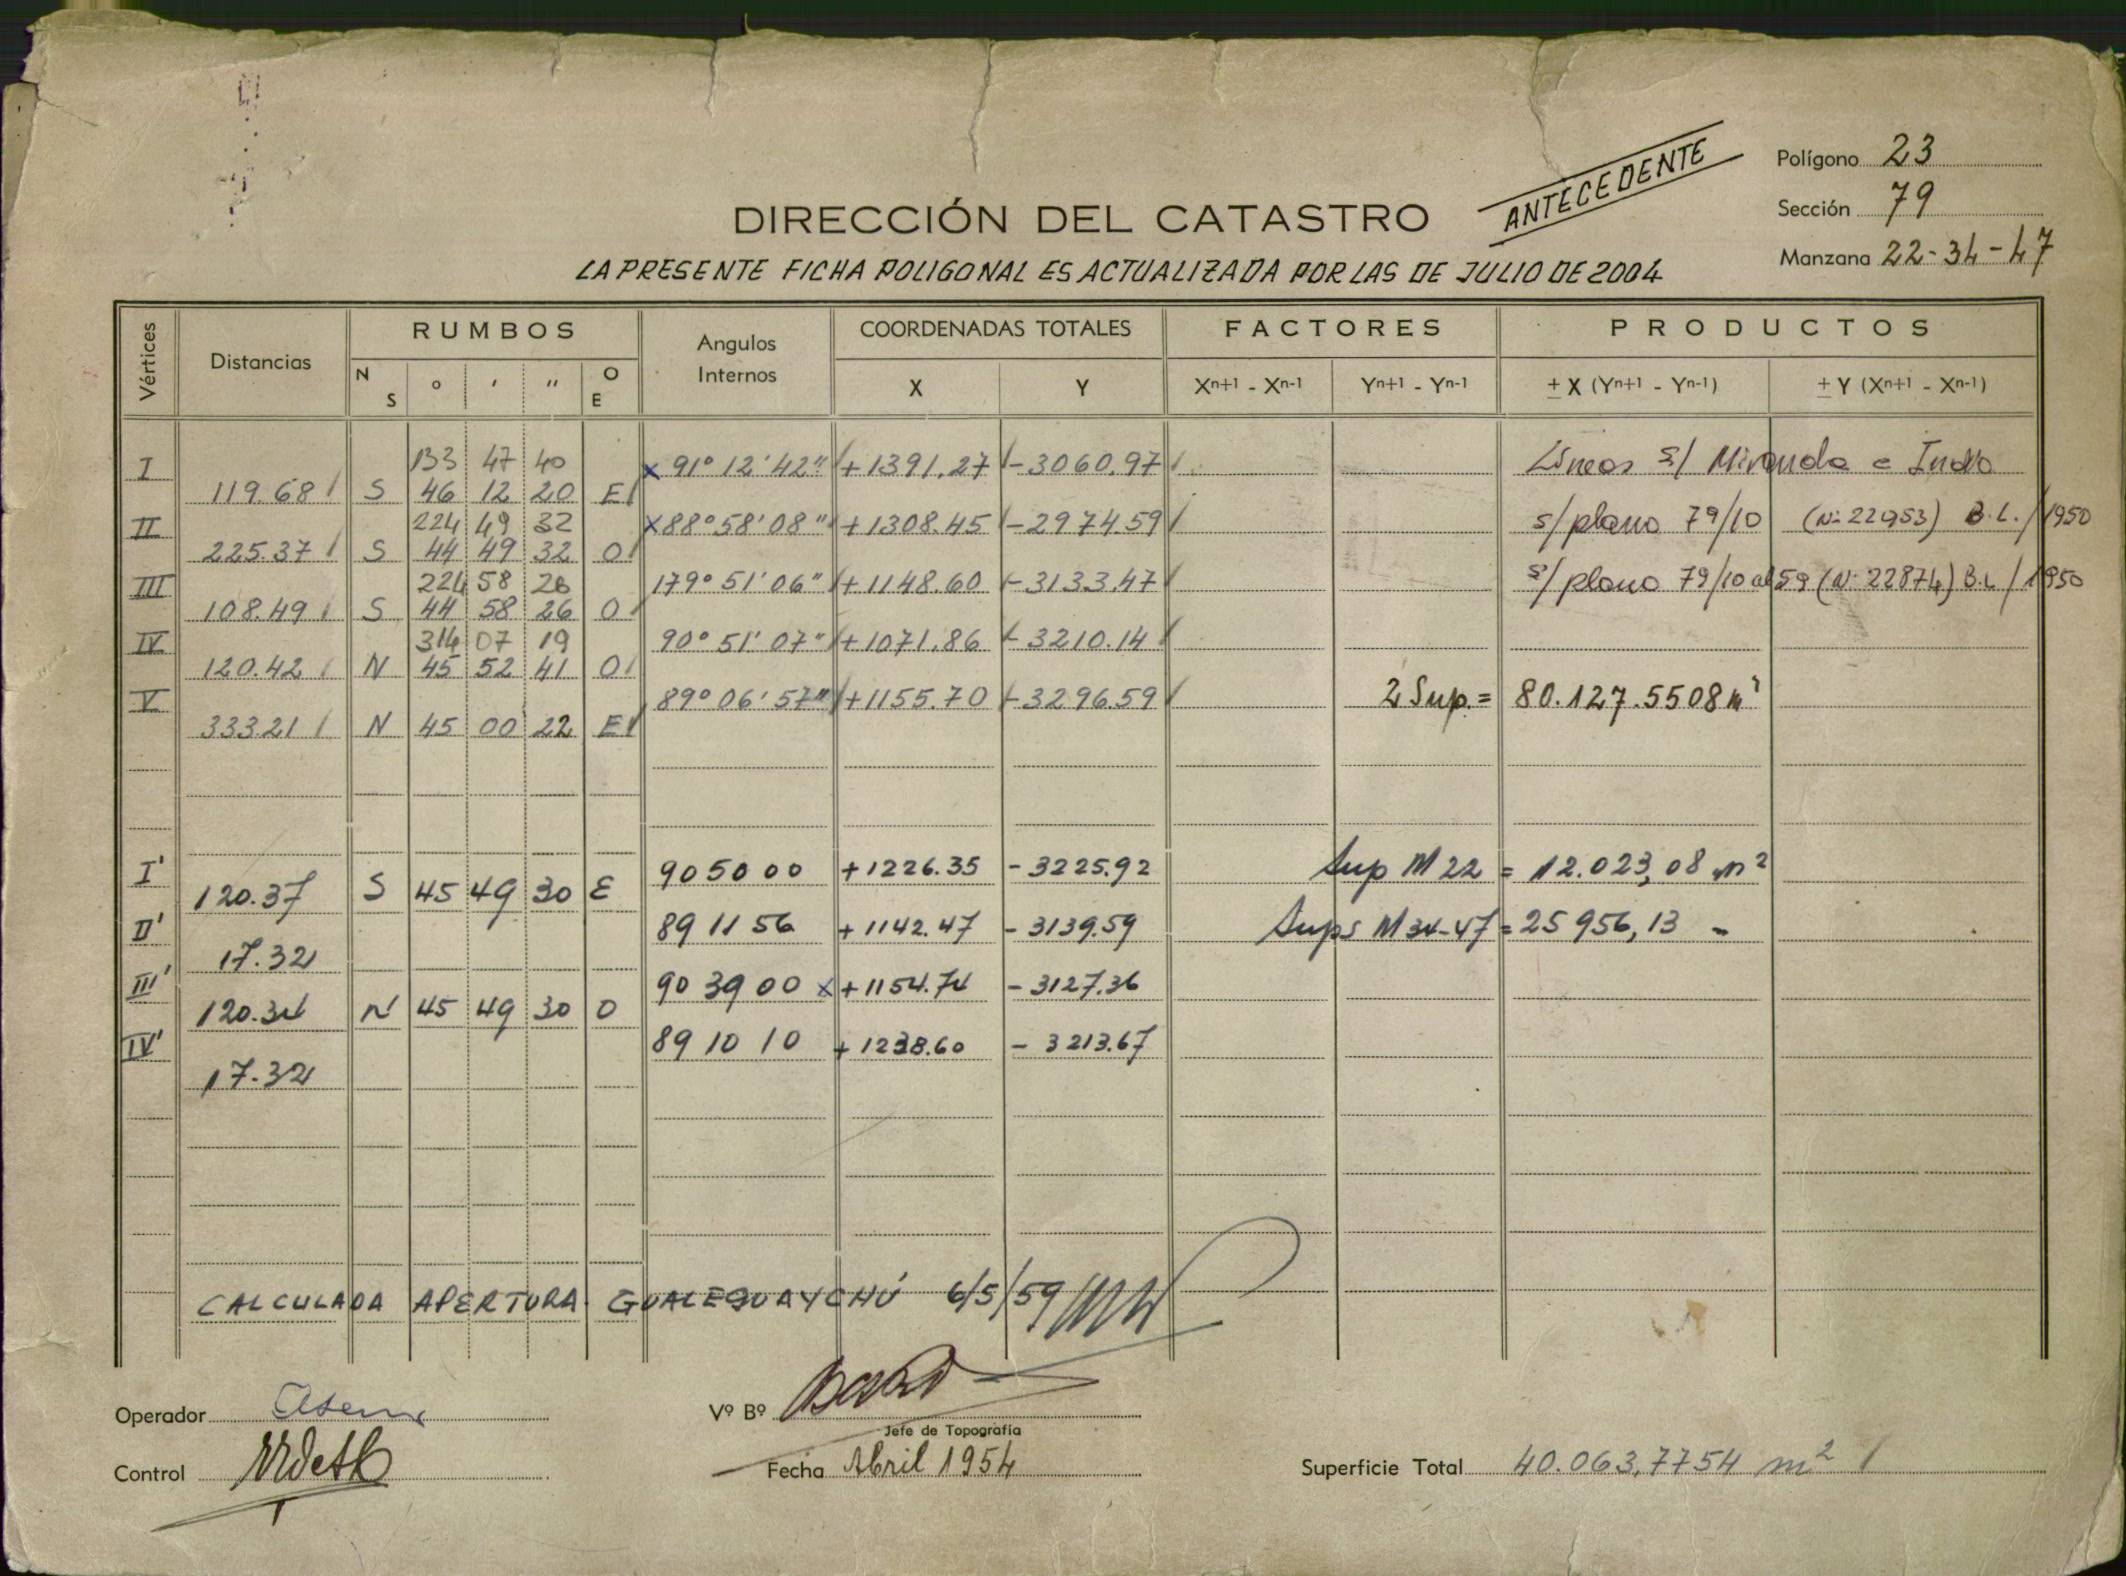 ANTECEDENTE
Polígono 23
Sección 79
Manzana 22-34-47
DIRECCIÓN DEL CATASTRO
LA PRESENTE FICHA POLIGONAL ES ACTUALIZADA POR LAS DE JULIO DE 2004
Vértices Distancias RUMBOS Angulos Internos COORDENADAS TOTALES FACTORES PRODUCTOS
N S o ' '' O E X Y Xn+1 - Xn-1 Yn+1 - Yn-1 ± X (Yn+1 - Yn-1) ± Y (Xn+1 - Xn-1)
133 47 40
I x 91° 12' 42" +1391.27 -3060.97 Lineas s/ Miranda e
119.68 S 46 12 20 E
224 49 32
II x 88° 58' 08" +1308.45 -2974.59 s/plano 79/10 (Nº 22953) B.L. /1950
225.37 S 44 49 32 O
224 58 26
III 179° 51' 06" +1148.60 -3133.47 s/plano 79/10 al 59 (Nº 22874) B.L /1950
108.49 S 44 58 26 O
314 07 19
IV 90° 51' 07" +1071.86 -3210.14
120.42 N 45 52 41 O
V 89° 06' 57" +1155.70 -3296.59 2 Sup. = 80.127.5508 m²
333.21 N 45 00 22 E
I' 90 50 00 +1226.35 -3225.92 Sup M 22 = 12.023,08 m²
120.37 S 45 49 30 E
II' 89 11 56 +1142.47 -3139.59 Sups M 34-47 = 25956,13 -
17.32
III' 90 39 00 x +1154.74 -3127.36
120.34 N 45 49 30 O
IV' 89 10 10 +1238.60 -3213.67
17.32
CALCULADA APERTURA GUALEGUAYCHÚ 6/5/59
Operador
Vº Bº
Jefe de Topografía
Control
Fecha Abril 1954
Superficie Total 40.063,7754 m²